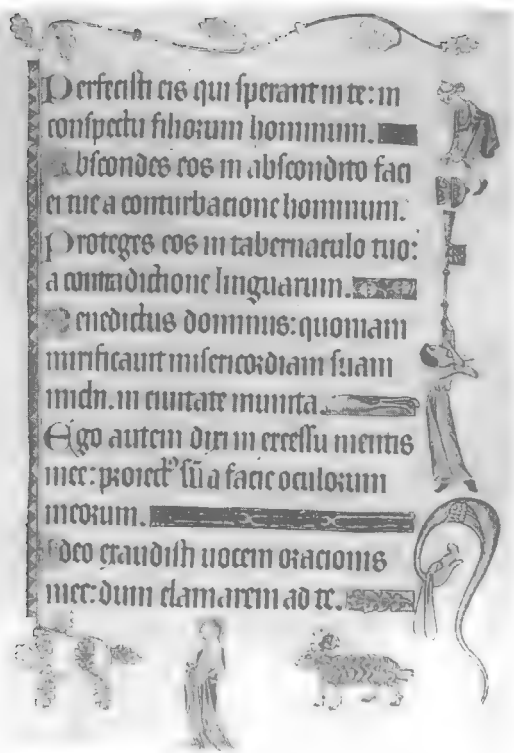 Perfecisti eis qui sperant in te: in
conspectu filiorum hominum.
Abscondes eos in abscondito faci
ei tue a conturbacione hominum.
Proteges eos in tabernaculo tuo:
a contradictione linguarum.
Benedictus dominus: quoniam
mirificauit misericordiam suam
michi. in ciuitate munita.
Ego autem dixi in excessu mentis
mee: proiectꝰ sū a facie oculorum
meorum.
Ideo exaudisti uocem oracionis
mee: dum clamarem ad te.